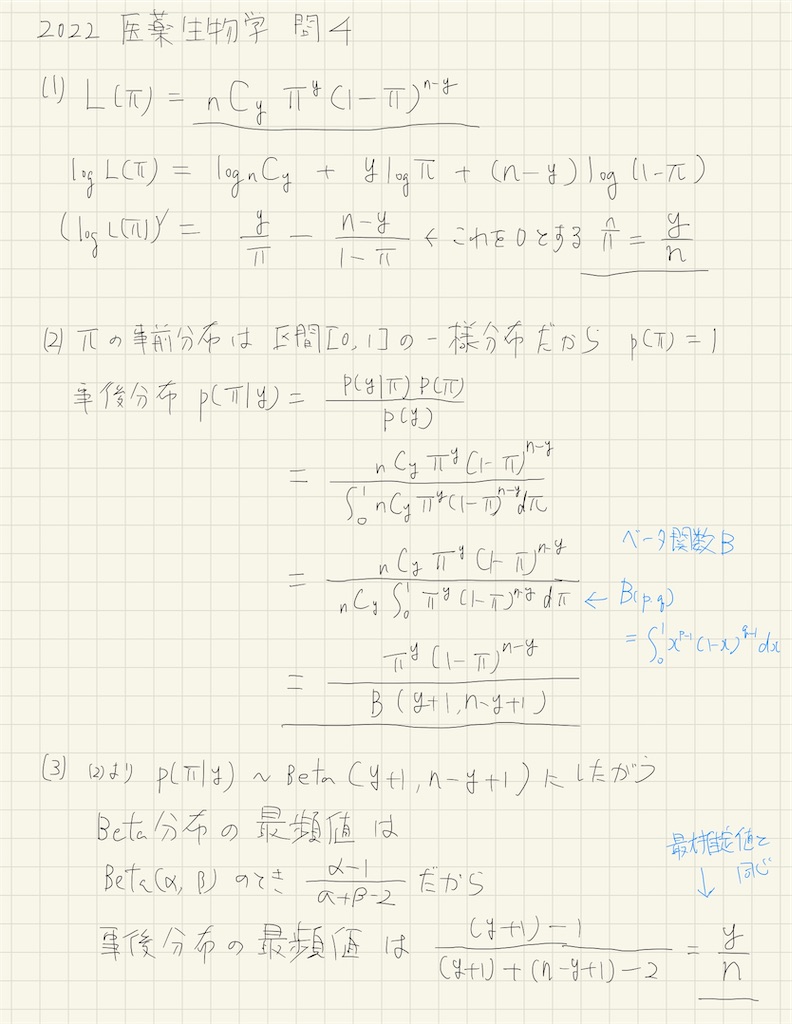 2022 医薬生物学 問4
(1) L(π) = nCy π^y (1-π)^{n-y}
log L(π) = log nCy + y log π + (n-y) log (1-π)
(log L(π))' = y/π - (n-y)/(1-π) ← これを0とする π̂ = y/n
(2) πの事前分布は区間[0,1]の一様分布だから p(π) = 1
事後分布 p(π|y) = p(y|π) p(π) / p(y)
= nCy π^y (1-π)^{n-y} / ∫₀¹ nCy π^y (1-π)^{n-y} dπ
ベータ関数B
= nCy π^y (1-π)^{n-y} / nCy ∫₀¹ π^y (1-π)^{n-y} dπ ← B(p,q)
= ∫₀¹ x^{p-1} (1-x)^{q-1} dx
= π^y (1-π)^{n-y} / B(y+1, n-y+1)
(3) (2)より p(π|y) ~ Beta (y+1, n-y+1) にしたがう
Beta分布の最頻値は
Beta(α, β) のとき (α-1)/(α+β-2) だから
最尤推定値と
同じ
↓
事後分布の最頻値は ((y+1)-1)/((y+1)+(n-y+1)-2) = y/n